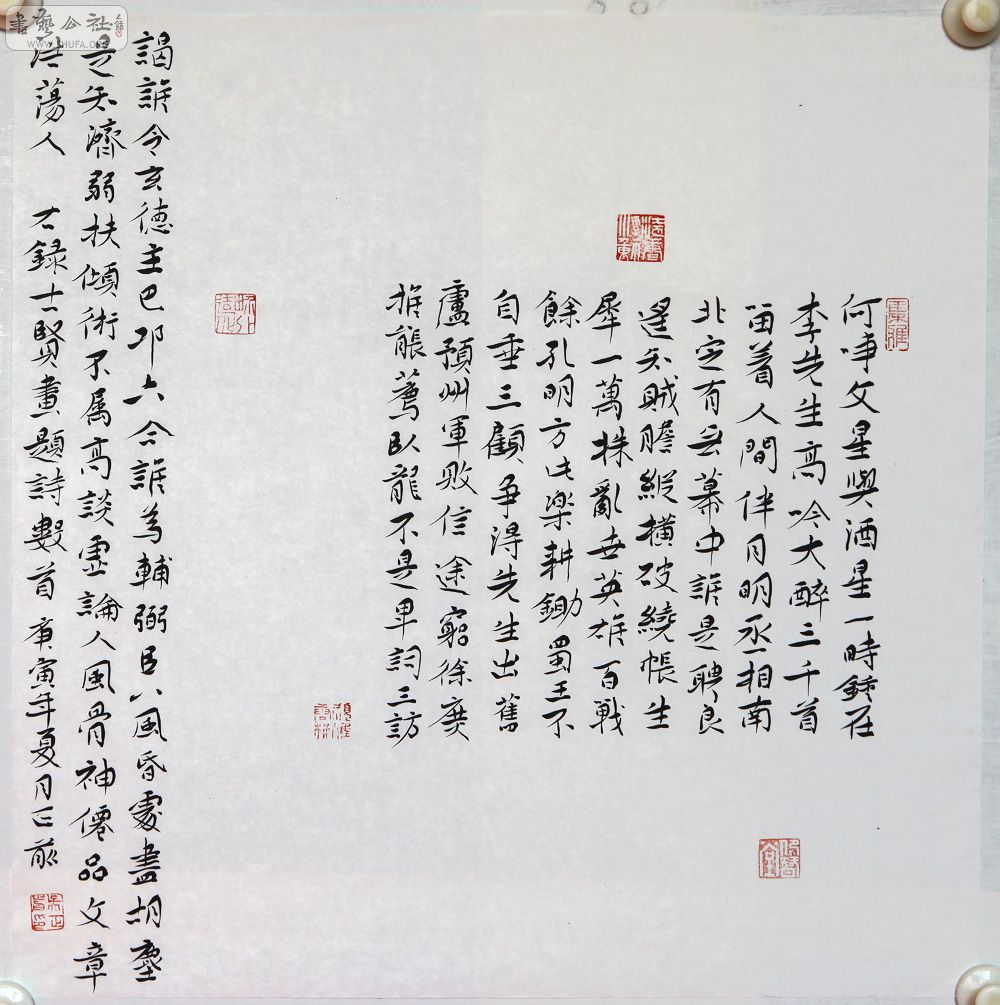 何事文星與酒星一時鍾在
李先生高吟大醉三千首
留着人間伴月明丞相南
北定有云幕中誰是聘良
遙知賊膽縱橫破繞帳生
犀一萬株亂世英雄百戰
餘孔明方此樂耕鋤蜀王不
自垂三顧爭得先生出舊
廬預州軍敗信途窮徐庶
推能薦臥龍不是卑詞三訪
謁誰令玄德主巴邛六合誰為輔弼臣八風昏處盡胡塵
是知濟弱扶傾術不屬高談虛論人風骨神僊品文章
浩蕩人 右錄十賢畫題詩數首 庚寅年夏月正
書藝公社
www.SHUFA.ORG